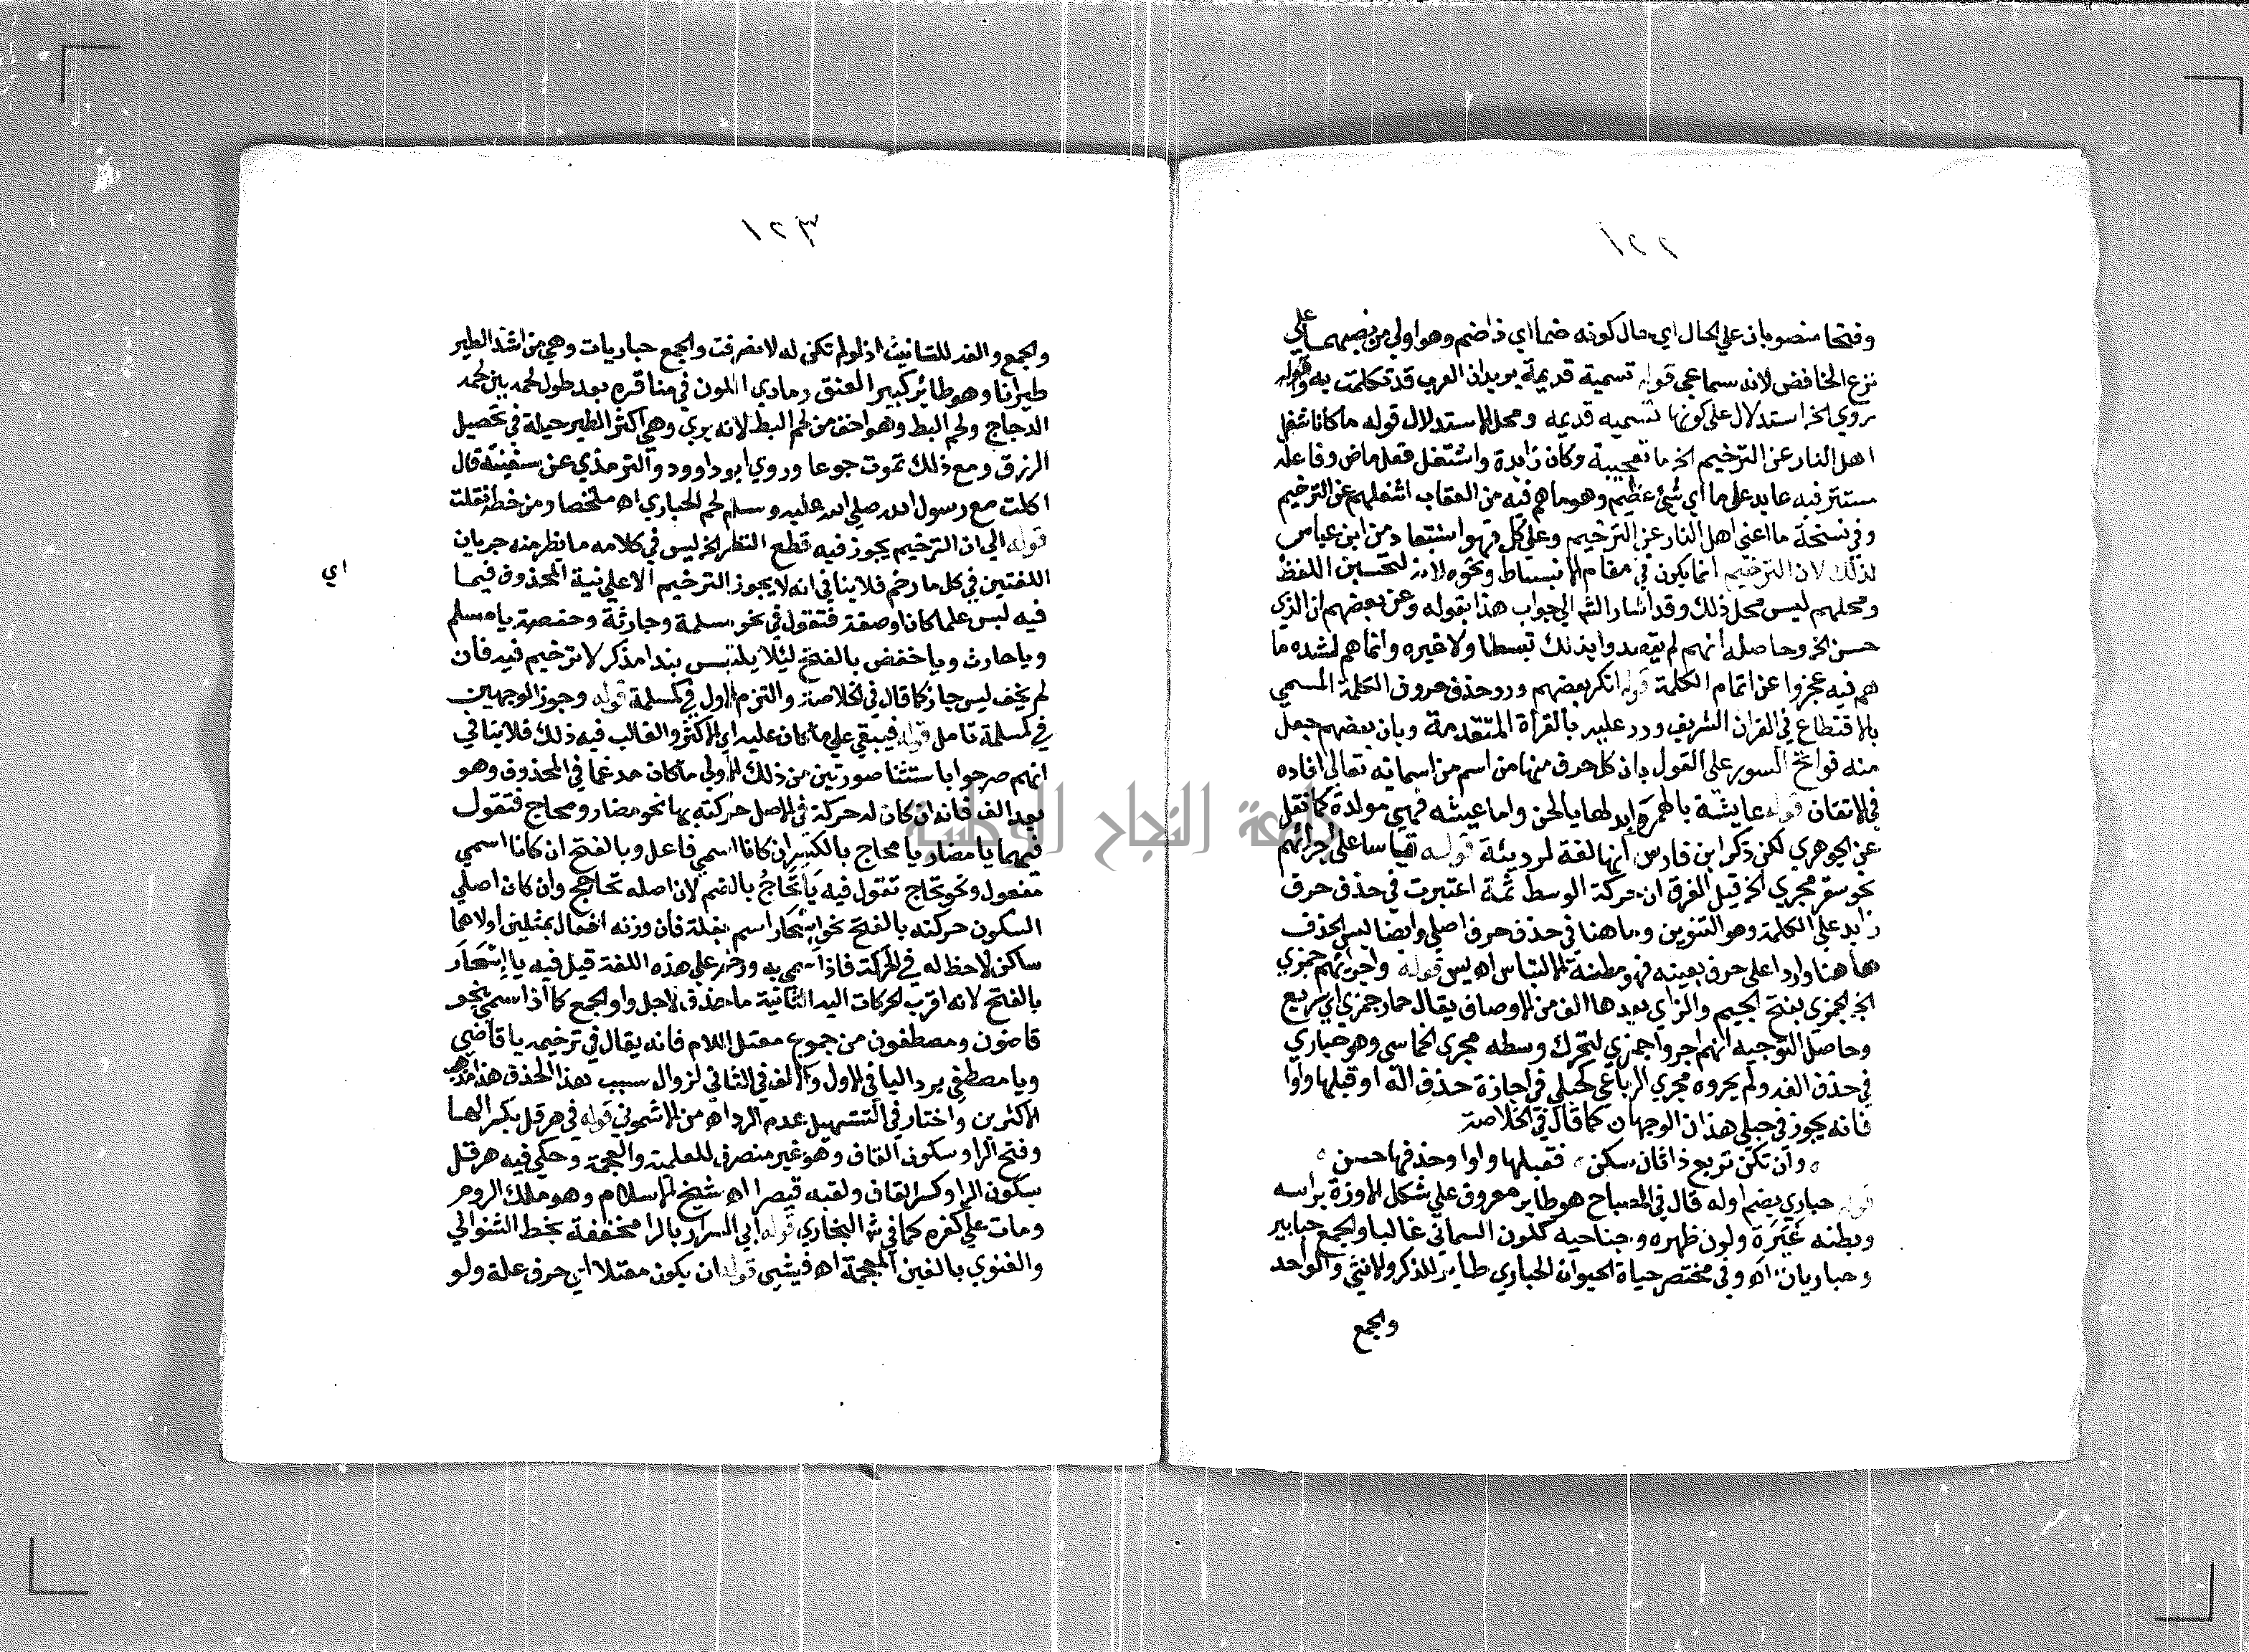 ١٢٢
وفتحا منصوبان علي الحال اي حال كونه ضما اي ذا ضم وهو اولي من نصبهما علي
نزع الخافض لانه سماعي قوله تسمية قديمة يريد ان العرب قد تكلمت به وقوله
روي الخ استدلال علي كونها تسميه قديمه ومحل الاستدلال قوله ما كان اشغل
اهل النار عن الترخيم الخ ما تعجيبية وكان زايدة واشتغل فعل ماض وفاعله
مستتر فيه عايد علي ما اي شيئ عظيم وهو ما هم فيه من العقاب اشغلهم عن الترخيم
وفي نسخة ما اغني اهل النار عن الترخيم وعلي كل فهو استبعاد من ابن عباس
لذلك لان الترخيم انما يكون في مقام الانبساط ونحوه لانه لتحسين اللفظ
ومحلهم ليس محل ذلك وقد اشار الشم الي جواب هذا بقوله وعن بعضهم ان الذي
حسن الخ وحاصله انهم لم يقصدوا بذلك تبسطا ولا غيره وانما هم لشده ما
هم فيه عجزوا عن اتمام الكلمة قوله انكر بعضهم ورود حذف حروف الكلمة المسمي
بالاقتطاع في القران الشريف ورد عليه بالقرأة المتقدمة وبان بعضهم جعل
منه فواتح السور علي القول بان كل حرف منها من اسم من اسمائه تعالي افاده
في الاتقان قوله عايشة بالهمزة ابدلها يا لحن واما عيشه فهي مولدة كما نقل
عن الجوهري لكن ذكر ابن فارس انها لغة لرديئة قوله قياسا علي اجرائهم
نحو سقر مجري الخ قيل الفرق ان حركة الوسط ثمة اعتبرت في حذف حرف
زايد علي الكلمة وهو التنوين وما هنا في حذف حرف اصلي وايضا ليس الحذف
ها هنا واردا علي حرف بعينه فهو مظنة للالتباس اه يس قوله واجرائهم جمزي
الخ الجمزي بفتح الجيم والزاي بعدها الف من الاوصاف يقال حمار جمزي اي سريع
وحاصل التوجيه انهم اجروا جمزي لتحرك وسطه مجري الخماسي وهو حباري
في حذف الفه ولم يجروه مجري الرباعي كحبلي في اجازة حذف الفه او قبلها واوا
فانه يجوز في حبلي هذان الوجهان كما قال في الخلاصة
وان تكن تربع ذا ثان سكن فقلبها واوا وحذفها حسن
قوله حباري بضم اوله قال في المصباح هو طاير معروف علي شكل الاوزة براسه
وبطنه غبرة ولون ظهره وجناحيه كلون السماني غالبا والجمع حبابير
وحباريات اه وفي مختصر حياة الحيوان الحباري طاير للذكر والانثي والواحد
والجمع
١٢٣
والجمع والفه للتانيث اذ لو لم تكن له لانصرفت والجمع حباريات وهي من اشد الطير
طيرانا وهو طائر كبير العنق رمادي اللون في مناقره بعد طول لحمه بين لحم
الدجاج ولحم البط وهو اخف من لحم البط لانه بري وهي اكثر الطير حيلة في تحصيل
الرزق ومع ذلك تموت جوعا وروي ابو داوود والترمذي عن سفينة قال
اكلت مع رسول الله صلي الله عليه وسلم لحم الحباري اه ملخصا ومن خطه نقلت
قوله الي ان الترخيم يجوز فيه قطع النظر الخ ليس في كلامه ما يظهر منه جريان
اللغتين في كل ما رخم فلا ينافي انه لا يجوز الترخيم الا علي نية المحذوف فيما
اي
فيه لبس علما كان او صفة فتقول في نحو مسلمة وحارثة وحفصة يا مسلم
ويا حارث ويا حفص بالفتح لئلا يلتبس بندا مذكر لا ترخيم فيه فان
لم يخف لبس جاز كما قال في الخلاصة والتزم الاول في كمسلمة قوله وجوز الوجهين
في كمسلمة تامل قوله فيبقي علي ما كان عليه اي الاكثر والغالب فيه ذلك فلا ينافي
انهم صرحوا باستثنا صورتين من ذلك الاولي ما كان مدغما في المحذوف وهو
بعد الف فانه ان كان له حركة في الاصل حركته بها نحو مضار ومحاج فتقول
فيهما يا مضار يا محاج بالكسر ان كانا اسمي فاعل وبالفتح ان كانا اسمي
مفعول ونحو تحاج تقول فيه يا تحاجُ بالضم لان اصله تحاجج وان كان اصلي
السكون حركته بالفتح نحو اسحار اسم بقلة فان وزنه افعال بمثلين اولاهما
ساكن لاحظ له في الحركة فاذا سمي به ورخم علي هذه اللغة قيل فيه يا اسحارَ
بالفتح لانه اقرب الحركات اليه الثانية ما حذف لاجل واو الجمع كما اذا سمي بنحو
قاضون ومصطفون من جموع معتل اللام فانه يقال في ترخيمه يا قاضي
ويا مصطفي برد اليا في الاول والالف في الثاني لزوال سبب الحذف هذا مذهب
الاكثرين واختار في التسهيل عدم الرد اه من الاشموني قوله في هرقل بكسر الها
وفتح الرا وسكون القاف وهو غير منصرف للعلمية والعجمة وحكي فيه هرقل
بسكون الرا وكسر القاف ولقبه قيصر اه شيخ الاسلام وهو ملك الروم
ومات علي كفره كما في شم البخاري قوله ابي السرار بالرا مخففة بخط الشنواني
والغنوي بالغين المعجمة اه فيشي قوله ان يكون معتلا اي حرف علة ولو
جامعة النجاح الوطنية